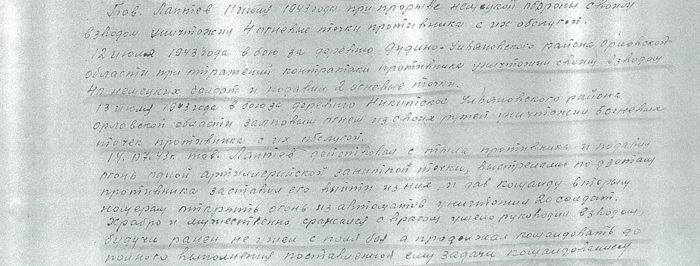 Тов. Лаптев 11 июля 1943 года при прорыве немецкой обороны с своим
взводом уничтожил 4 огневые точки противника с их обслугой.
12 июля 1943 года в бою за деревню Дудино-Ульяновского района Орловской
области при отражении контратаки противника уничтожил своим взводом
40 немецких солдат и подавил 2 огневые точки.
13 июля 1943 года в бою за деревню Никитское Ульяновского района
Орловской области залповым огнем из своих ружей уничтожил 6 огневых
точек противника с их обслугой.
14.07.43г тов. Лаптев действовал с тыла противника и подавил
огонь одной артиллерийской зенитной точки, выстрелами по дзотам
противника заставил его выйти из них и дав команду вторым
номерам открыть огонь из автоматов уничтожил 20 солдат.
Храбро и мужественно сражался с врагом умело руководил взводом,
будучи ранен не ушел с поля боя а продолжал командовать до
полного выполнения поставленной ему задачи командованием